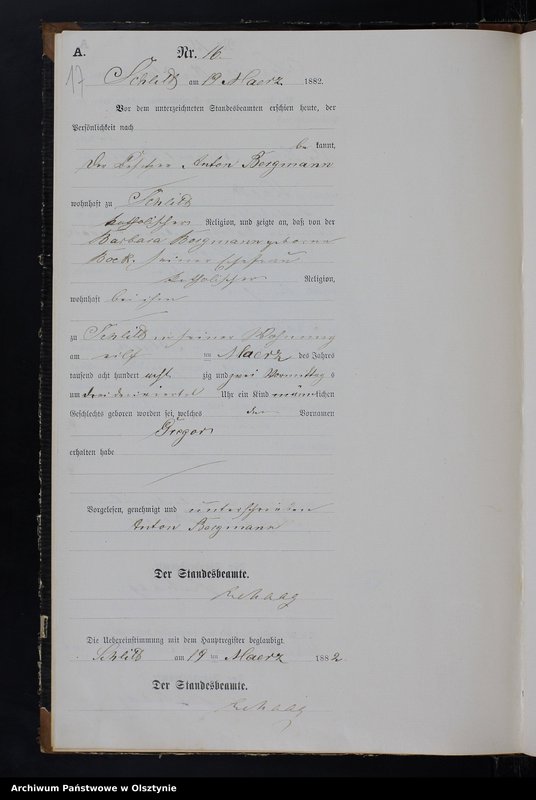 A. Nr. 16
17
Schlitt am 19 Maerz 1882.
Vor dem unterzeichneten Standesbeamten erschien heute, der
Persönlichkeit nach
be kannt,
Der Besitzer Anton Bergmann
wohnhaft zu Schlitt
katholischer Religion, und zeigte an, daß von der
Barbara Bergmann geborne
Bock, seiner Ehefrau
katholischer Religion,
wohnhaft bei ihm
zu Schlitt in seiner Wohnung
am eilf ten Maerz des Jahres
tausend acht hundert acht zig und zwei Vormittags
um drei dreiviertel Uhr ein Kind männlichen
Geschlechts geboren worden sei, welches den Vornamen
Gregor
erhalten habe
Vorgelesen, genehmigt und unterschrieben
Anton Bergmann
Der Standesbeamte.
Rehaag
Die Uebereinstimmung mit dem Hauptregister beglaubigt.
Schlitt am 19 ten Maerz 1882
Der Standesbeamte.
Rehaag
Archiwum Państwowe w Olsztynie